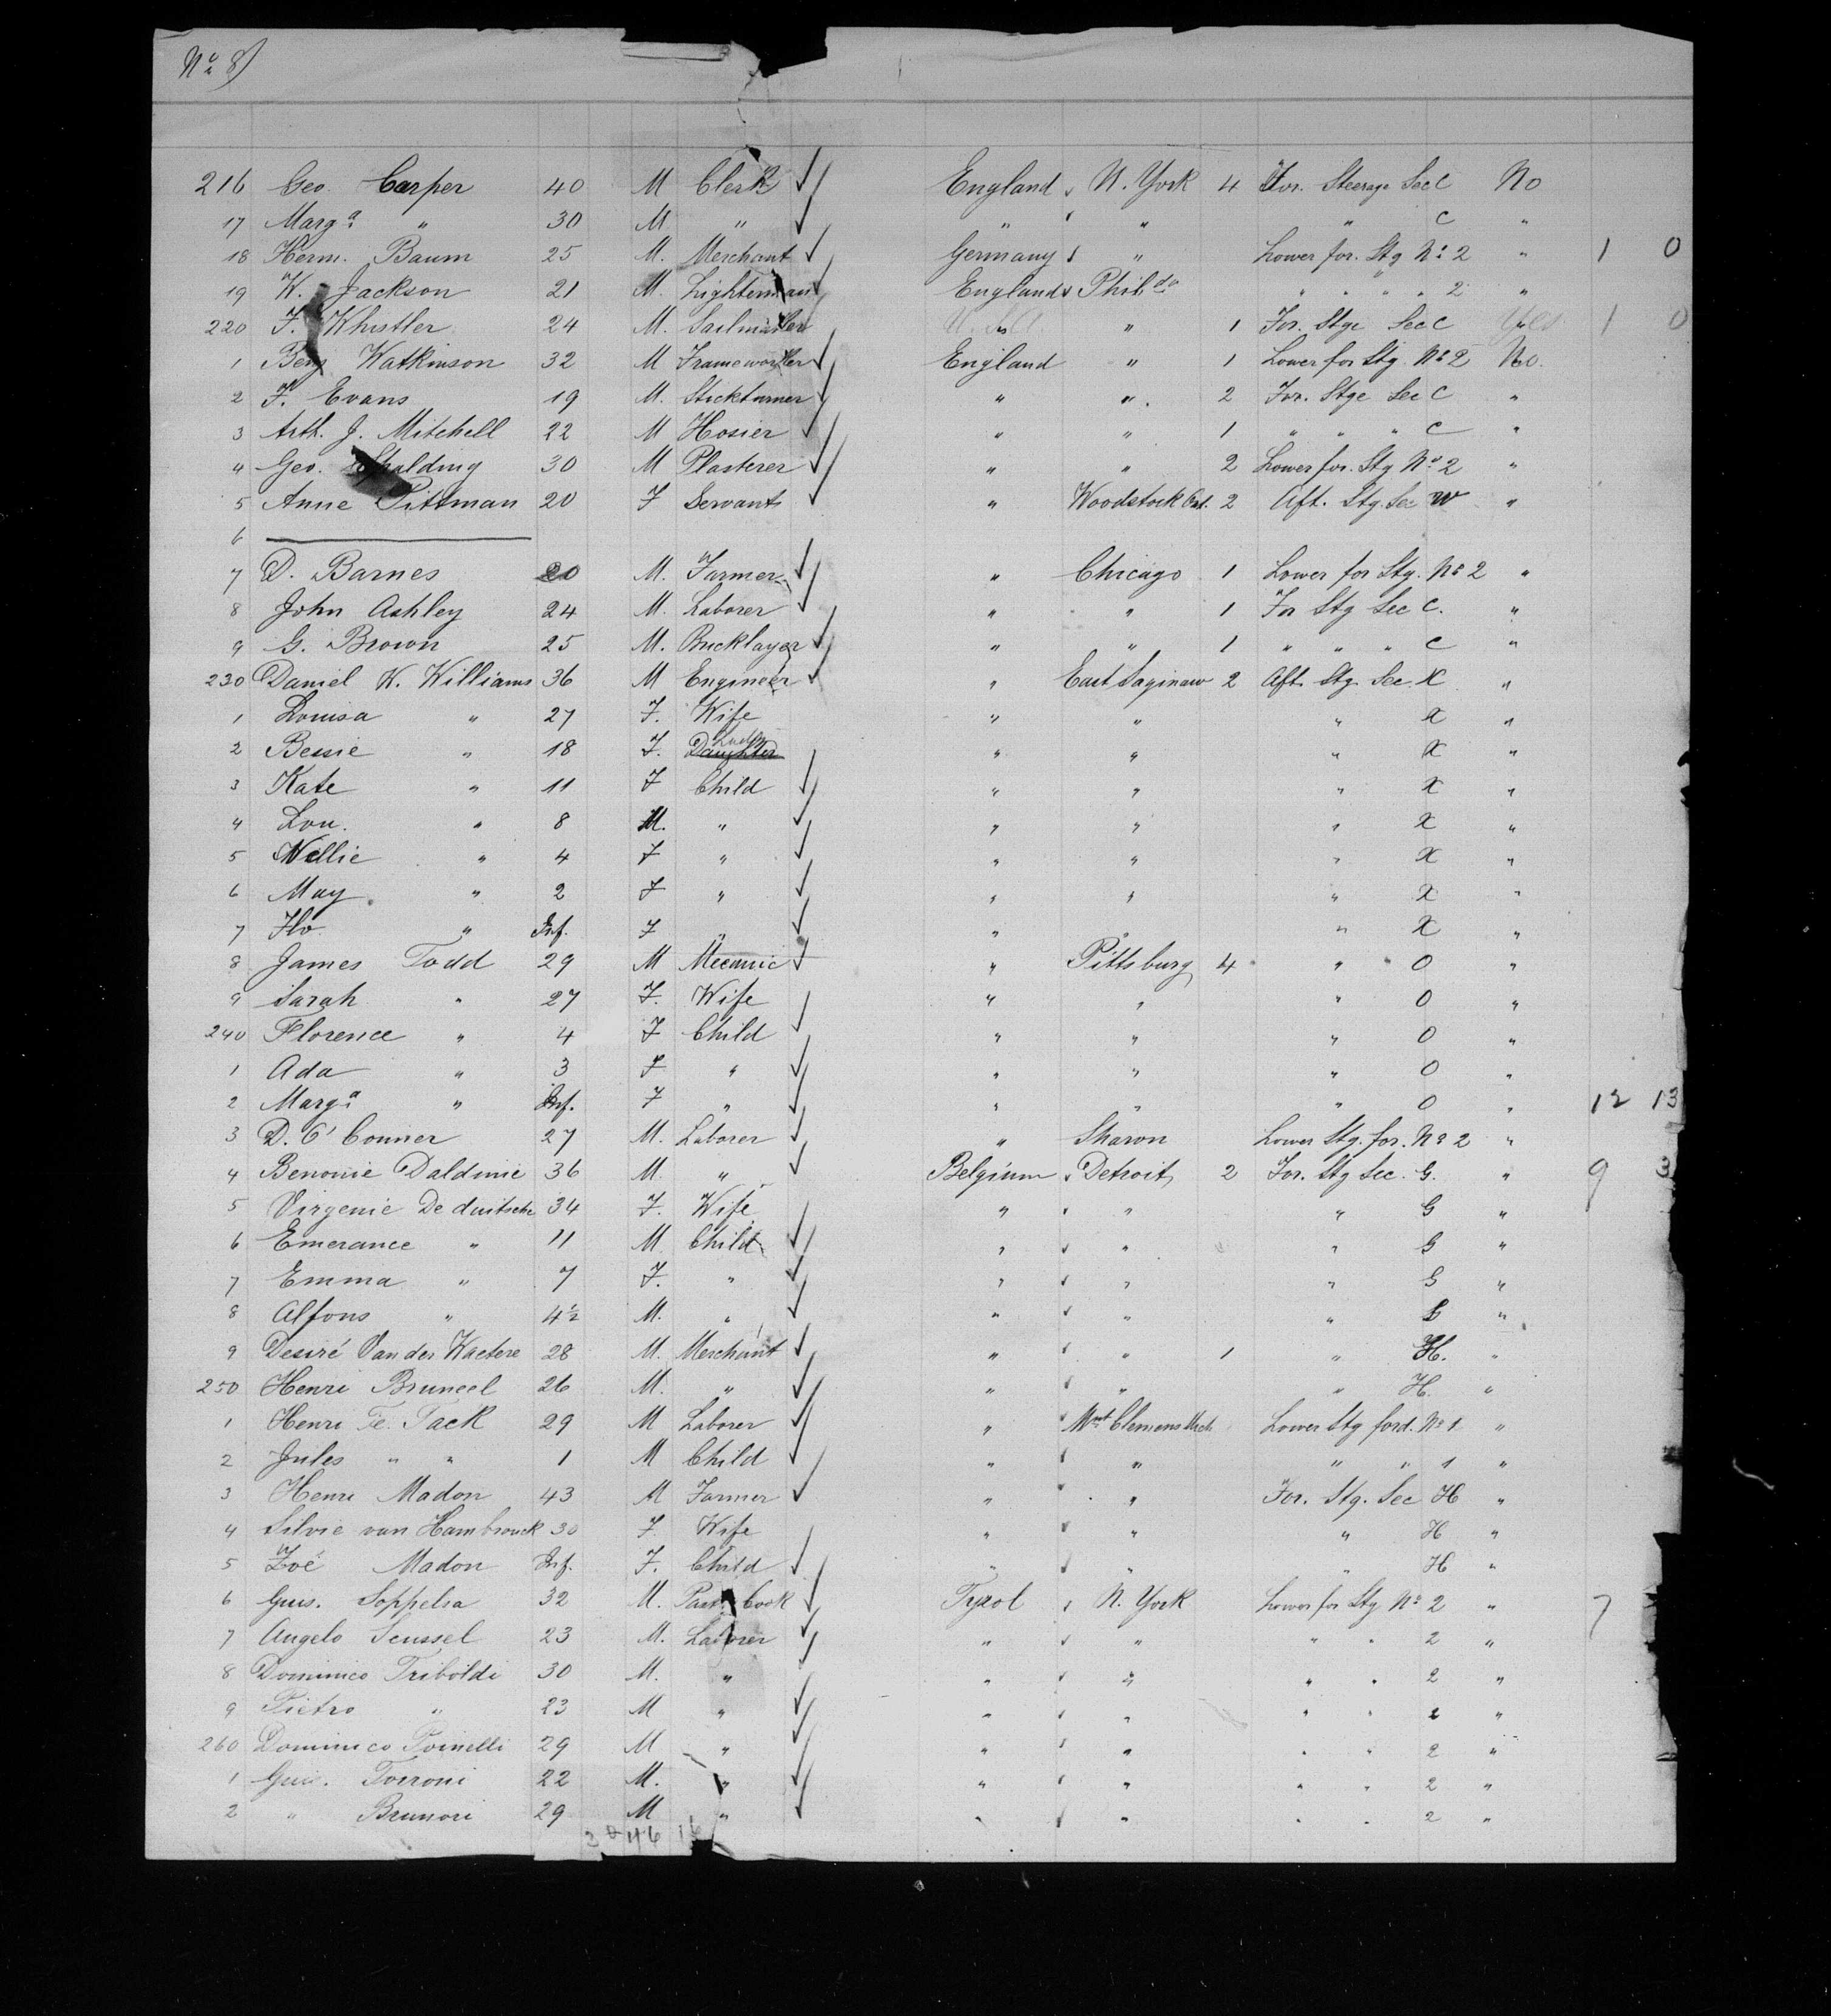 No 8)
216 Geo. Carper 40 M Clerk England N. York 4 For. Steerage Sec C No
17 Marga " 30 M " " " " C "
18 Herm. Baum 25 M. Merchant Germany " Lower for. Stg No 2 " 1 0
19 W. Jackson 21 M. Lighterman England Philda " " " " 2 "
220 F. Whistler 24 M. U.S.A. " 1 For. Stge Sec C Yes 1 0
1 Benj Watkinson 32 M Frameworker England " 1 Lower for Stg. No 2 No.
2 F. Evans 19 M. Stickturner " " 2 For. Stge Sec C "
3 Arth. J. Mitchell 22 M Hosier " " 1 " " " C "
4 Geo. Spalding 30 M Plasterer " " 2 Lower for. Stg No 2 "
5 Anne Pittman 20 F Servant " Woodstock Ont. 2 Aft. Stg. Sec W "
6
7 D. Barnes 20 M. Farmer " Chicago 1 Lower for Stg. No 2 "
8 John Ashley 24 M. Laborer " " 1 For Stg Sec C. "
9 G. Brown 25 M. Bricklayer " " 1 " " " C "
230 Daniel W. Williams 36 M Engineer " East Saginaw 2 Aft. Stg. Sec. X "
1 Louisa " 27 F. Wife " " " X "
2 Bessie " 18 F. Daughter " " " X "
3 Kate " 11 F Child " " " X "
4 Lou. " 8 M. " " " " X "
5 Nellie " 4 F " " " " X "
6 May " 2 F " " " " X "
7 Flo " Inf. F " " " " X "
8 James Todd 29 M Mecanic " Pittsburg 4 " " O "
9 Sarah " 27 F. Wife " " " O "
240 Florence " 4 F Child " " " O "
1 Ada " 3 F " " " " O "
2 Marga " Inf. F " " " " O " 12 13
3 D. O'Conner 27 M. Laborer " Sharon Lower Stg. for. No 2 "
4 Benonie Daldinie 36 M. " Belgium Detroit 2 For. Stg Sec. G. " 9 3
5 Virgenie De duitsche 34 F. Wife " " " G "
6 Emerance " 11 M Child " " " G "
7 Emma " 7 F. " " " " G "
8 Alfons " 4½ M. " " " " G "
9 Desiré Van der Waetere 28 M. Merchant " " 1 " H. "
250 Henri Bruneel 26 M. " " " " H. "
1 Henri Te. Tack 29 M Laborer " Mnt Clemens Mich Lower Stg ford. No 1 "
2 Jules " " 1 M Child " " " " 1 "
3 Henri Madon 43 M Farmer " " For. Stg. Sec H "
4 Silvie van Hambrouck 30 F. Wife " " " H "
5 Zoé Madon Inf. F. Child " " " H "
6 Gius. Soppelsa 32 M. Cook Tyrol N. York Lower for Stg No 2 " 7
7 Angelo Scussel 23 M. Laborer " " " " 2 "
8 Dominico Triboldi 30 M. " " " " " 2 "
9 Pietro " 23 M " " " " " 2 "
260 Dominico Toinelli 29 M " " " " " 2 "
1 Gius. Torroni 22 M. " " " " " 2 "
2 " Brunori 29 M " " " " " 2 "
46 16